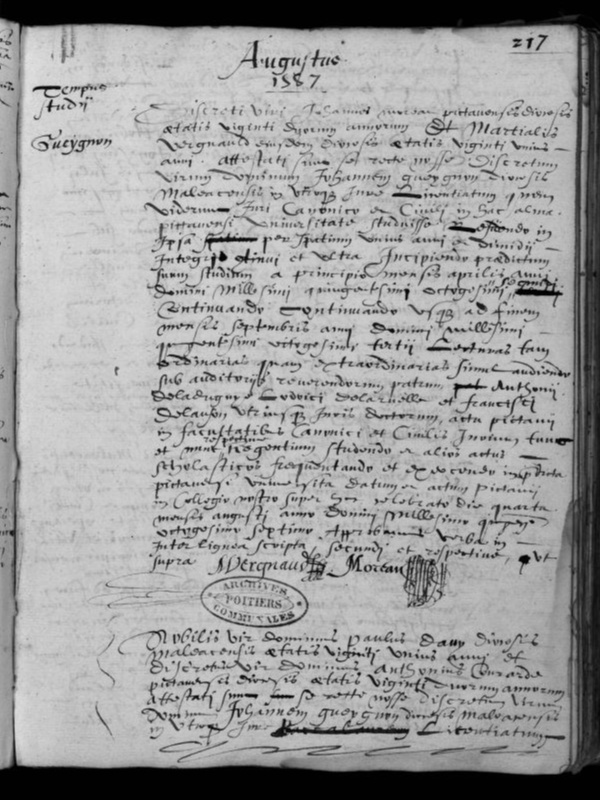 217
Augustus
1587
Tempus
studii
Gueygnon
Discreti viri Johannes moreau pictavensis diocesis
etatis viginti duorum annorum Et Martialis
Vergnauld eiusdem diocesis etatis viginti unius
anni. Attestati sunt se recte nosse Discretum
virum dominum Johannem gueygnon diocesis
Maleacensis in utroque Jure Licentiatum quem
viderunt Juri Canonico et Civili in hac alma
pictavensi universitate studuisse Legendo in
ipsa per spatium unius anni et dimidii
Integri et ultra Incipiendo predictum
suum studium a principio mensis aprilis anni
domini millesimi quingentesimi octogesimi secundi
Continuando Continuando usque ad finem
mensis septembris anni domini millesimi
quingentesimi octogesimi tertii Lecturas tam
ordinarias quam extraordinarias simul audiendo
sub auditoriis reverendorum patrum Anthonii
Deladuguye Lodovici Delaruelle et francisci
Delauson utriusque Juris doctorum, actu pictavii
in facultatibus Canonici et Civilis Jurium tunc
et nunc respective Regentium studendo et alios actus
scholasticos frequentando et exercendo in predicta
pictavensi universitate datum et actum pictavii
in Collegio nostro super hoc celebrato die quarta
mensis augusti anno domini millesimo quingen
octogesimo septimo Approbamus verba in
Interlignea scripta secundi et respective, ut
supra MVergnaud Moreau
ARCHIVES
POITIERS
COMMUNALES
Nobilis vir dominus paulus dauy diocesis
maleacensis etatis viginti unius anni et
discretus vir dominus Anthonius Curarde
pictavensis diocesis etatis viginti duorum annorum
Attestati sunt se recte nosse discretum virum
dominum Johannem gueygnon diocesis maleacensis
in utroque Jure Licentiatum